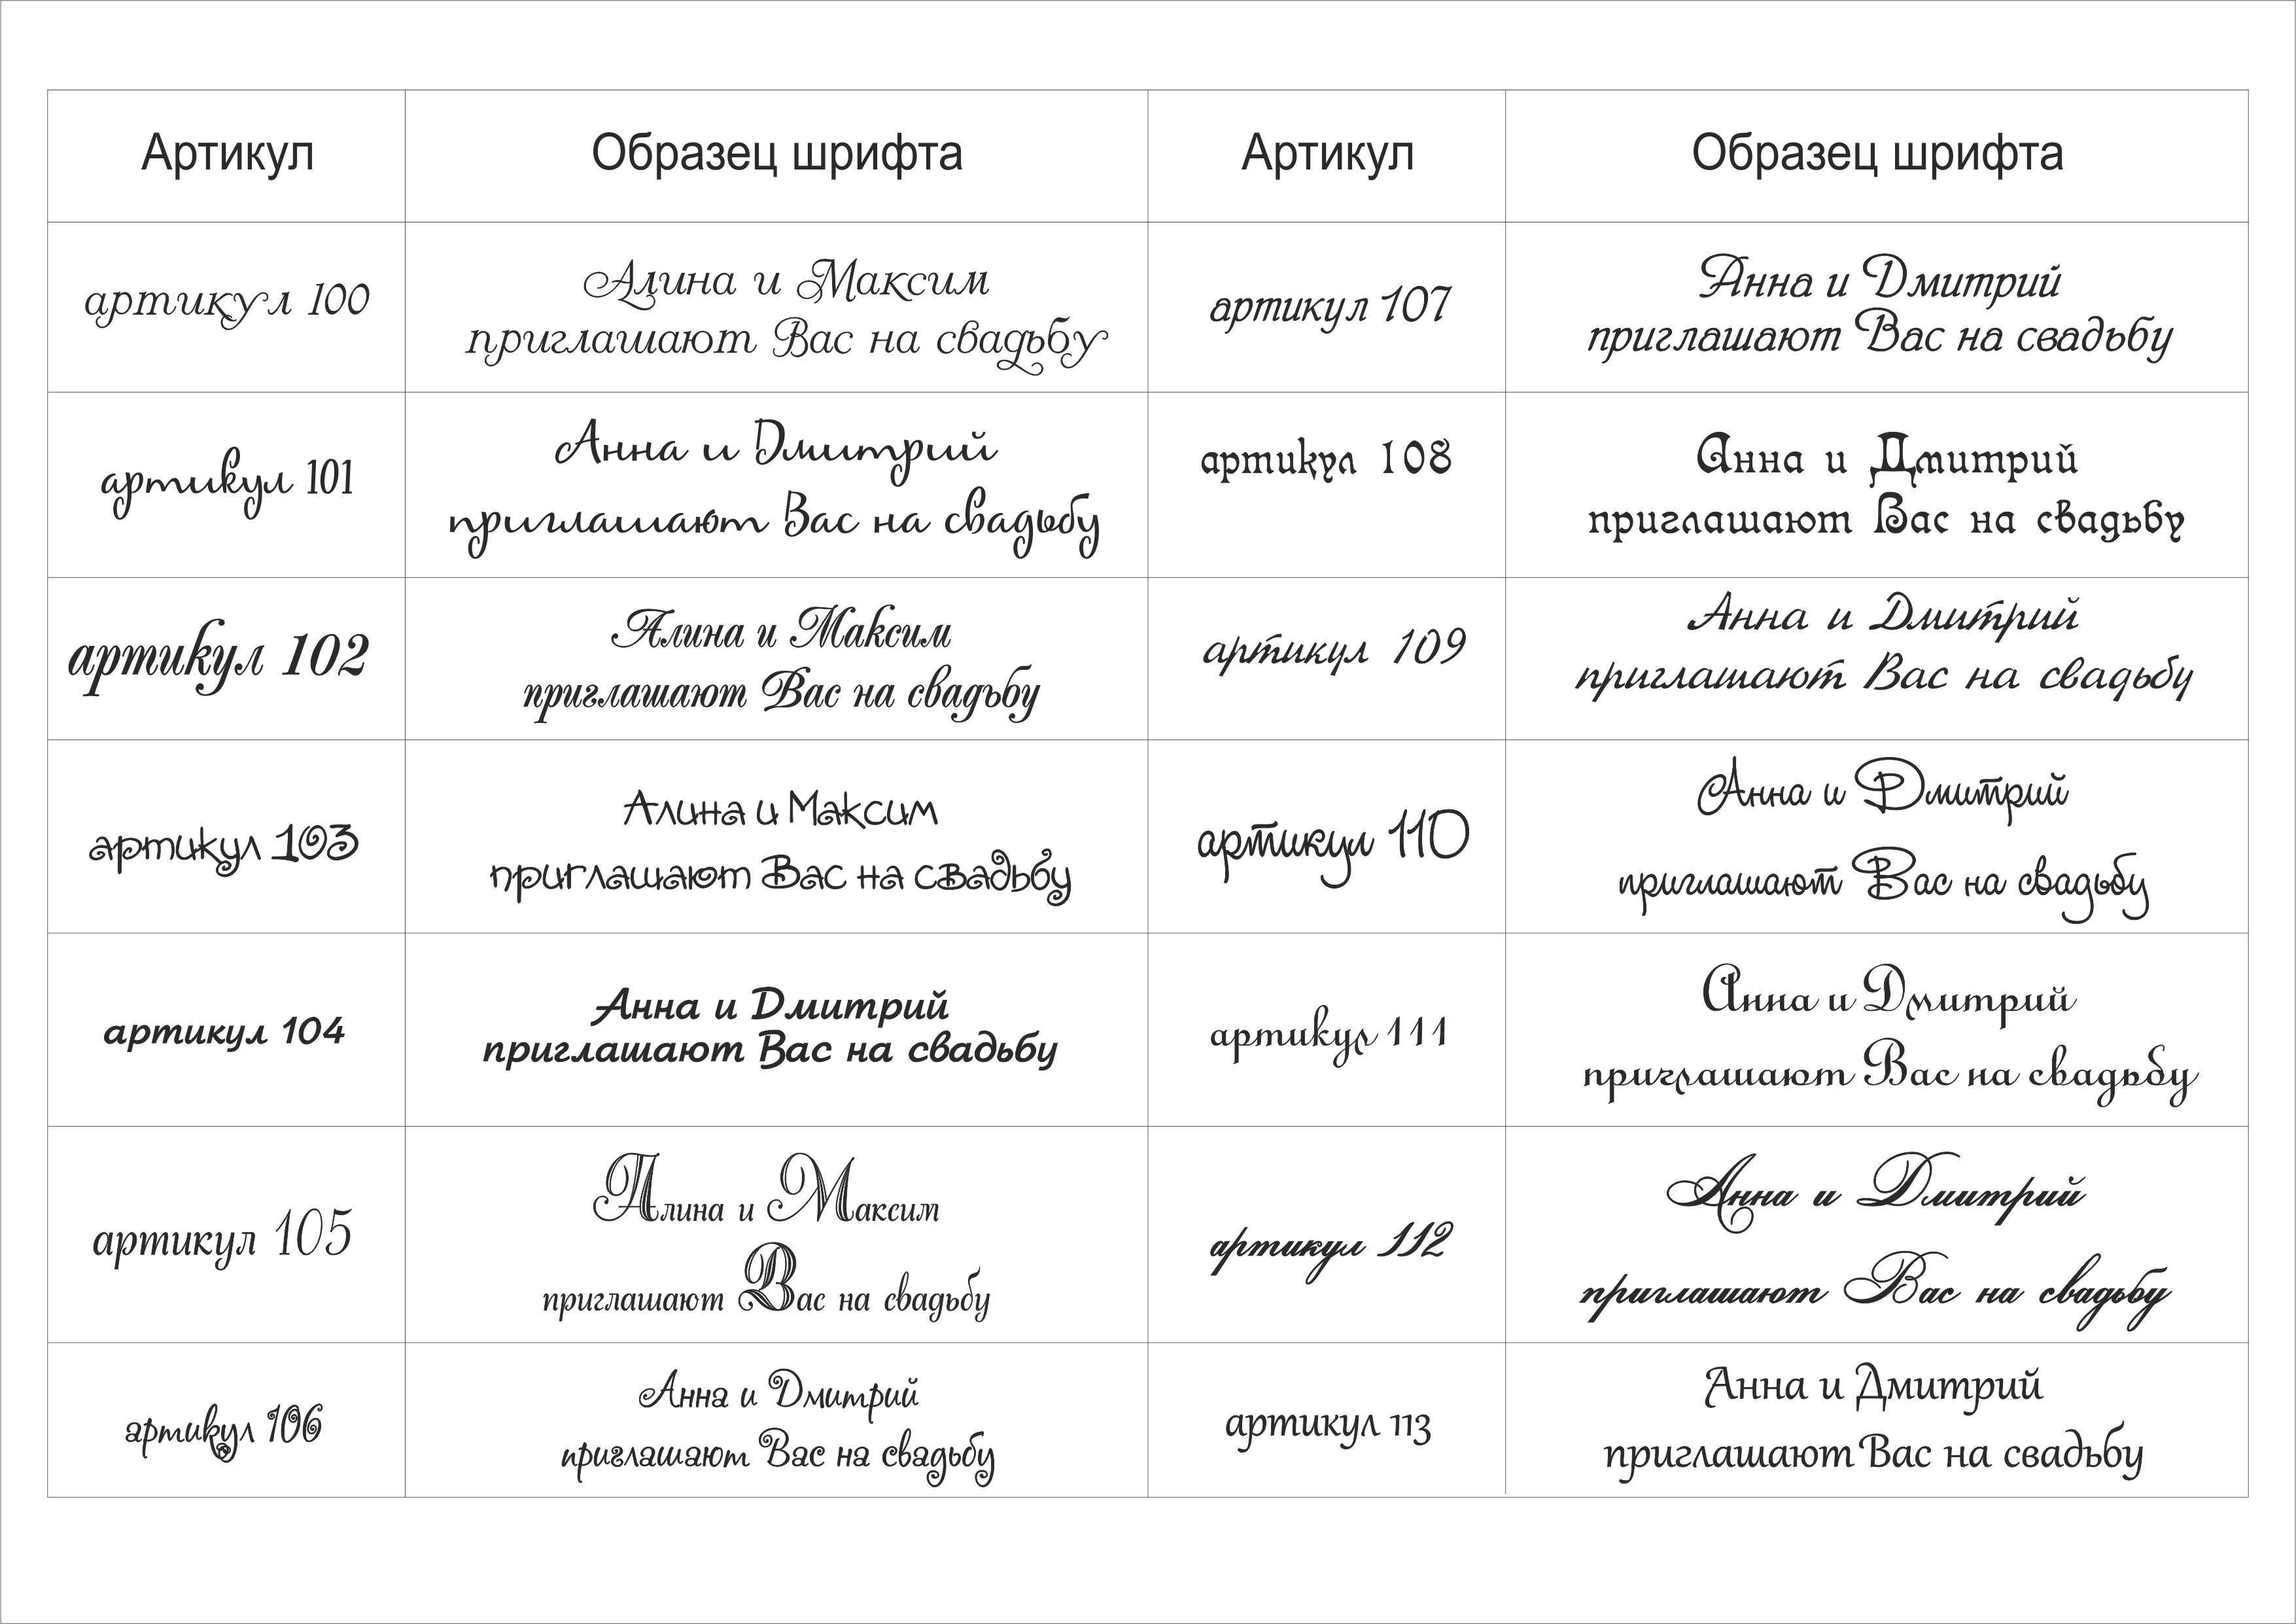 Артикул Образец шрифта Артикул Образец шрифта
артикул 100
Алина и Максим
приглашают Вас на свадьбу
артикул 107
Анна и Дмитрий
приглашают Вас на свадьбу
артикул 101
Анна и Дмитрий
приглашают Вас на свадьбу
артикул 108
Анна и Дмитрий
приглашают Вас на свадьбу
артикул 102
Алина и Максим
приглашают Вас на свадьбу
артикул 109
Анна и Дмитрий
приглашают Вас на свадьбу
артикул 103
Алина и Максим
приглашают Вас на свадьбу
артикул 110
Анна и Дмитрий
приглашают Вас на свадьбу
артикул 104
Анна и Дмитрий
приглашают Вас на свадьбу
артикул 111
Анна и Дмитрий
приглашают Вас на свадьбу
артикул 105
Алина и Максим
приглашают Вас на свадьбу
артикул 112
Анна и Дмитрий
приглашают Вас на свадьбу
артикул 106
Анна и Дмитрий
приглашают Вас на свадьбу
артикул 113
Анна и Дмитрий
приглашают Вас на свадьбу